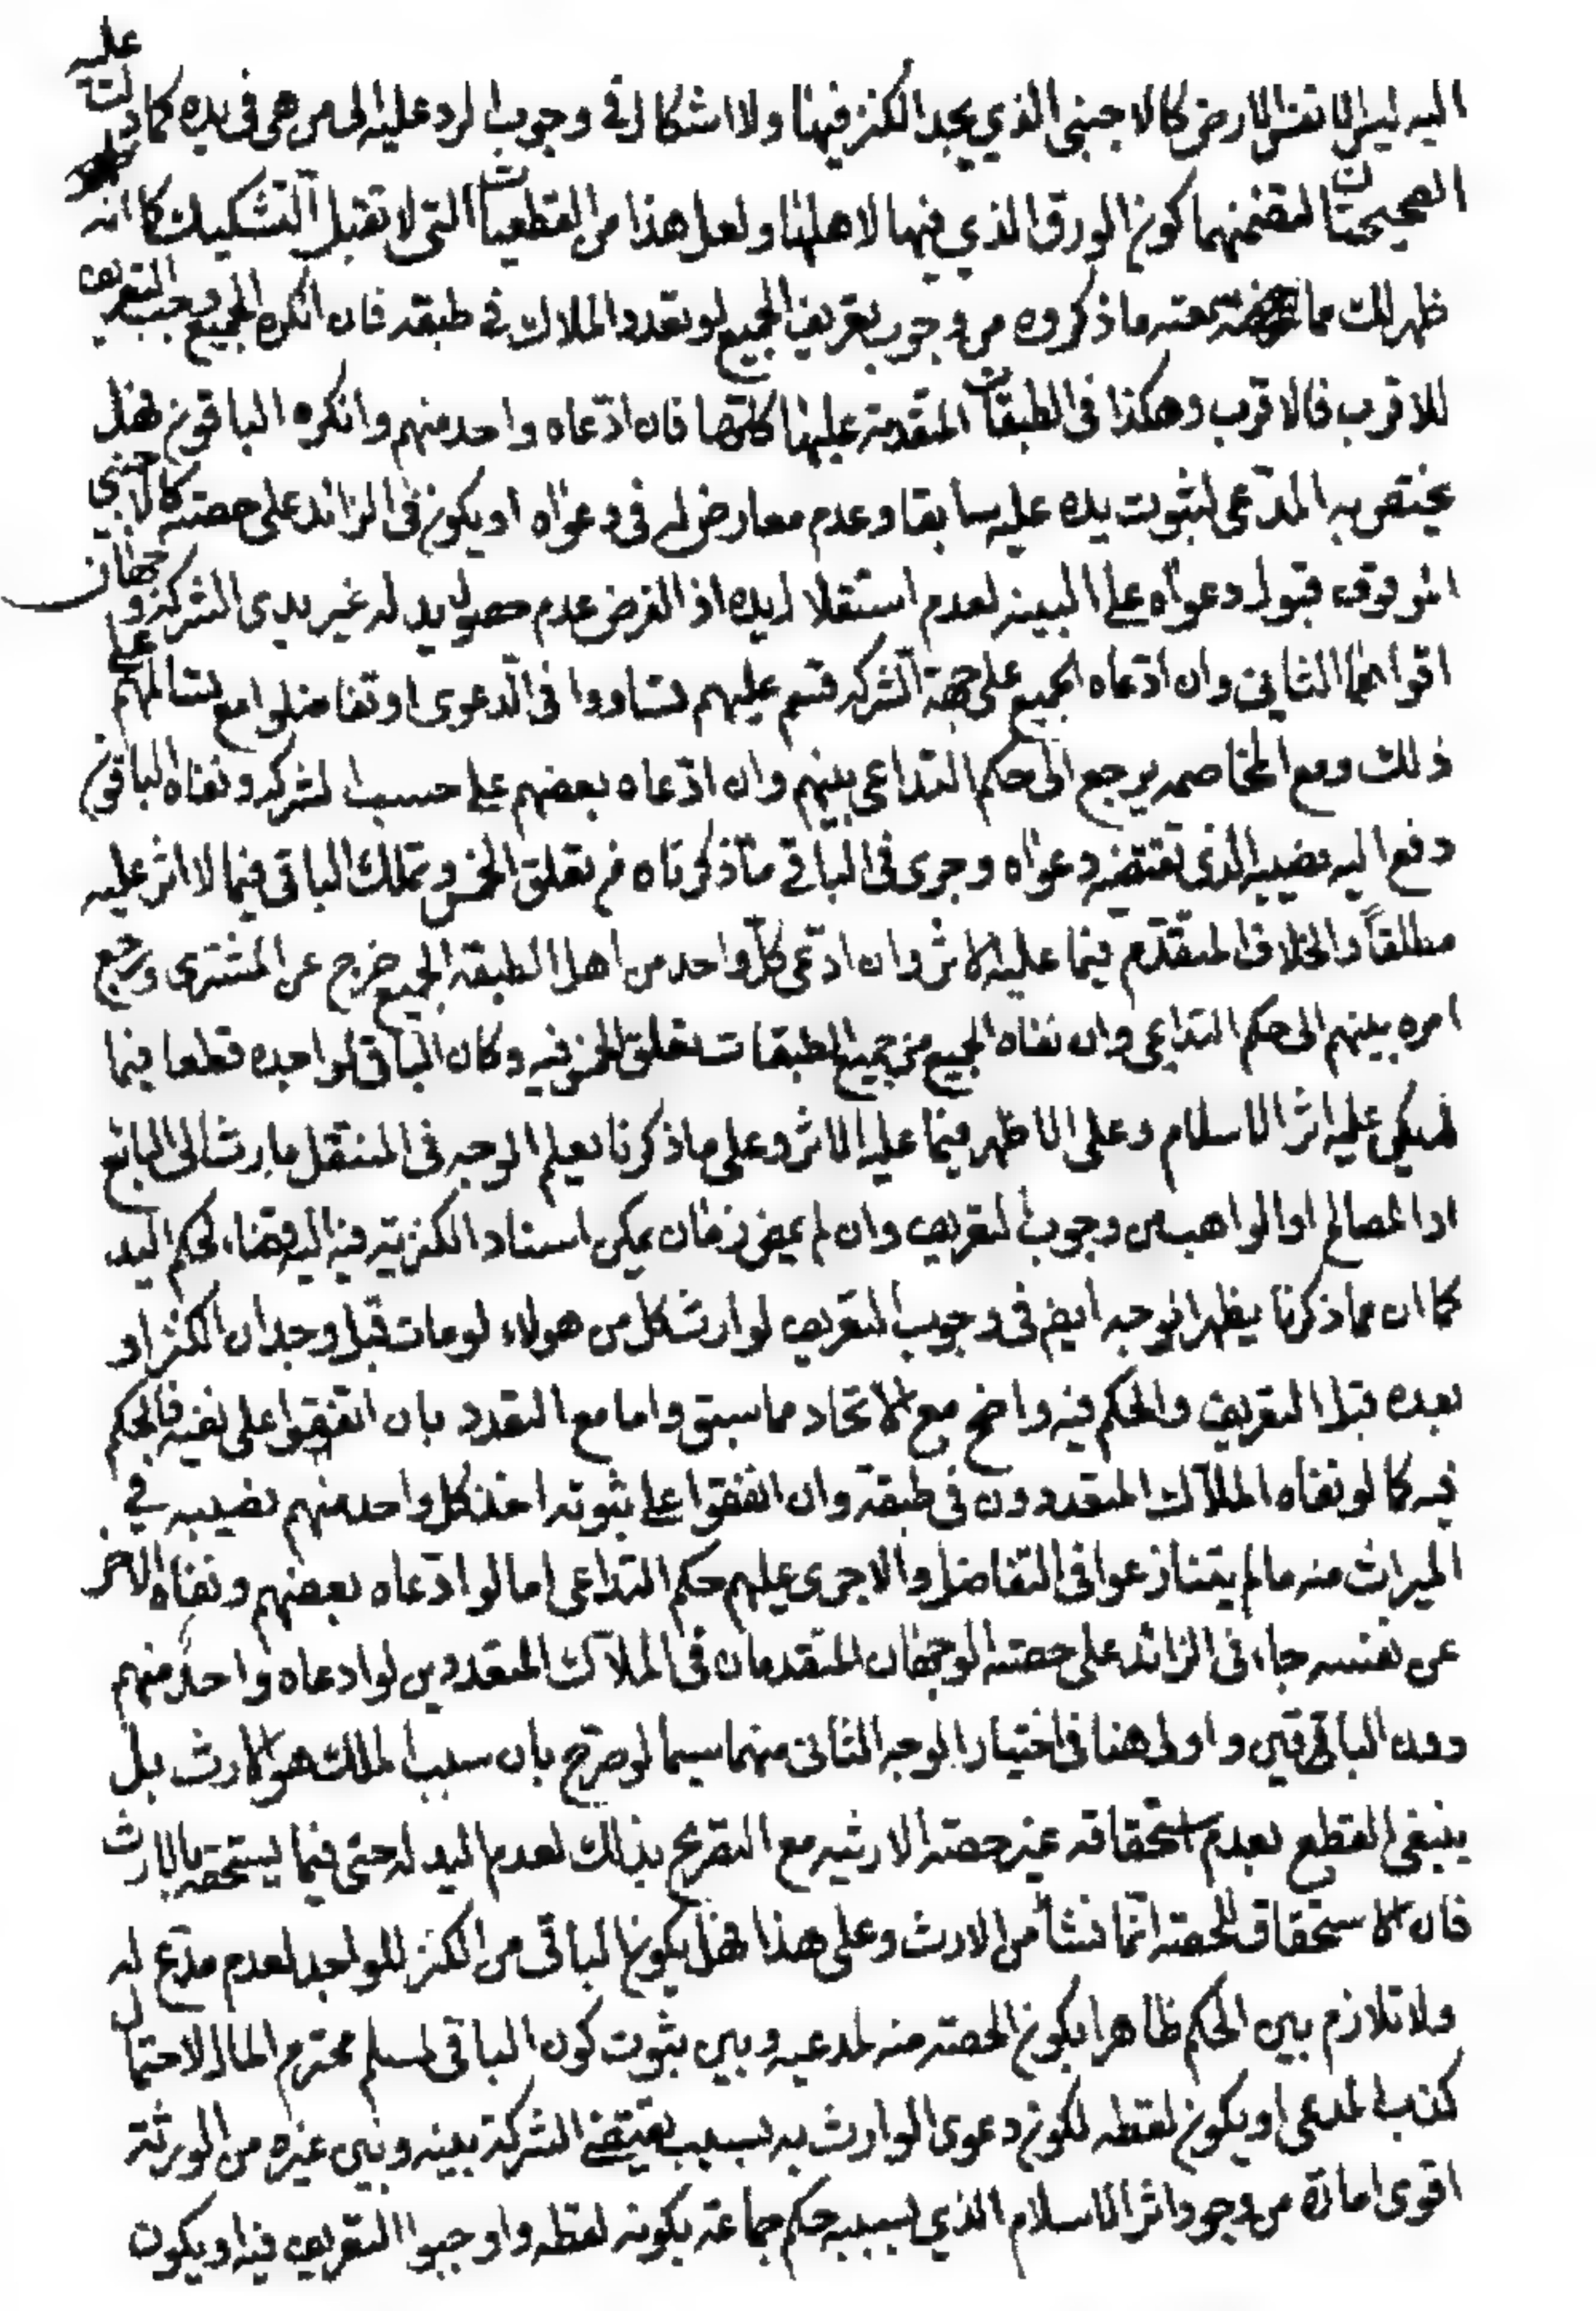 اليه ليس الا نفس الارض كالاجنبى الذي يجد الكنز فيها ولا اشكال فى وجوب الرد عليه الى من هى فى يده كما دلت عليه
الصحيحتان لتضمنهما كون الورق الذي فيها لاهلها ولعل هذا من القطعيات التى لا تقبل التشكيك كما انه
ظهر لك مما صحة ما ذكروه من وجوب تعريف الجميع لو تعدد الملاك فى طبقة فان انكره الجميع وجب التعريف
للاقرب فالاقرب وهكذا فى الطبقات المتقدمة عليها كلتها فان ادّعاه واحد منهم وانكره الباقون فهل
يختص به المدّعى لثبوت يده عليه سابقا وعدم معارض له فى دعواه او يكون فى الزائد على حصته كالاجنبي
الموقوف قبول دعواه على البينة لعدم استقلال يده اذ الفرض عدم حصول يد له غير يدى الشركة وجهان
اقواهما الثانى وان ادّعاه الجميع على جهة الشركة قسم عليهم تساووا فى الدعوى او تفاضلوا مع تسالمهم على
ذلك ومع المخاصمه يرجع الى حكم التداعى بينهم وان ادّعاه بعضهم على حسب الشركة ونفاه الباقون
دفع اليه نصيبه الذى تقتضيه دعواه وجرى فى الباقى ما ذكرناه من تعلق الخمس وتملك الباقى فيما لا اثر عليه
مطلقاً والخلاف المتقدّم فيما عليه الاثر وان ادّعى كلّ واحد من اهل الطبقة الجميع خرج عن المشترى ورجع
امره بينهم الى حكم التداعى وان نفاه الجميع من جميع الطبقات تعلق الخمس فيه وكان الباقى لواجده قطعا فيما
لم يكن عليه اثر الاسلام وعلى الاظهر فيما عليه الاثر وعلى ما ذكرنا يعلم الوجه فى المنتقل بارث الى البائع
او المصالح او الواهب من وجوب التعريف وان لم يمض زمان يمكن استناد الكنزية فيه اليه قضاء لحكم اليد
كما ان مما ذكرنا يظهر الوجه ايضا فى وجوب التعريف لوارث كل من هولاء لو مات قبل وجدان الكنز او
بعده قبل التعريف والحكم فيه واضح مع الاتحاد مما سبق واما مع التعدد بان اتفقوا على نفيه فالحكم
فيه كما لو نفاه الملّاك المتعددون فى طبقة وان اتفقوا على ثبوته اخذ كل واحد منهم نصيبه في
الميراث منه ما لم يتنازعوا فى التفاضل والا جرى عليهم حكم التداعى اما لو ادّعاه بعضهم ونفاه الاخر
عن نفسه جاء فى الزائد على حصته الوجهان المتقدمان فى الملاّك المتعددين لو ادعاه واحد منهم
دون الباقين واولى هنا فى اختيار الوجه الثانى منهما سيما لو صرّح بان سبب الملك هو الارث بل
ينبغى القطع بعدم استحقاقه غير حصته الارثيه مع التصريح بذلك لعدم اليد له حتى فيما يستحقه بالارث
فان الاستحقاق للحصته انّما نشأ من الارث وعلى هذا فهل يكون الباقى من الكنز للواجد لعدم مدّع له
ولا تلازم بين الحكم ظاهرا بكون الحصته منه لمدعيه وبين ثبوت كون الباقى لمسلم محترم المال لاحتمال
كذب المدعى او يكون لقطه لكون دعوى الوارث به بسبب يقتضى الشركة بينه وبين غيره من الورثة
اقوى امارة من وجود اثر الاسلام الذي بسببه حكم جماعة بكونه لقطه واوجبوا التعريف فيه او يكون